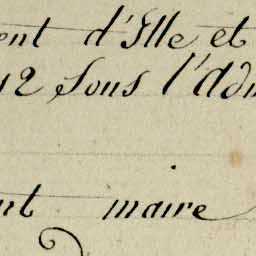 ent d'Ille et
12 sous l'Adm
nt maire